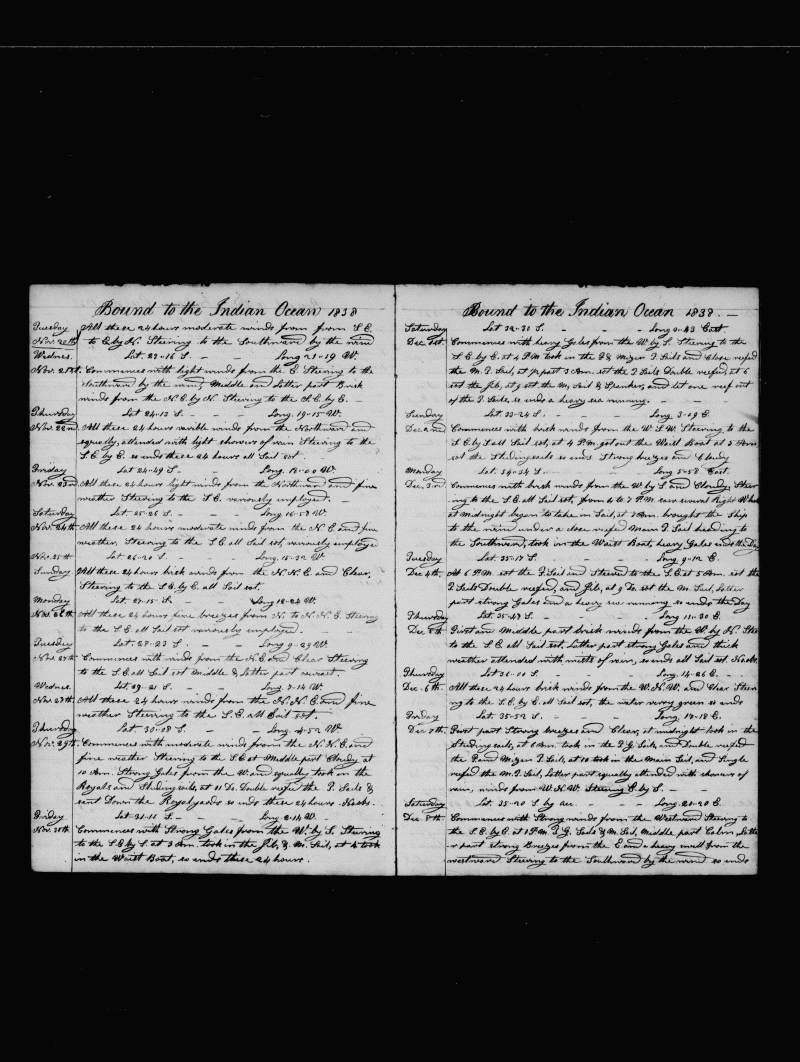 Bound to the Indian Ocean 1838
Tuesday All these 24 hours moderate winds from from S.E.
Nov. 20th to E. by N. Steering to the Southward by the wind
Wednes. Lat. 23-16 S. - - Long 21-19 W.
Nov. 21st. Commences with light winds from the E. Steering to the
Southward by the wind, Middle and Latter part Brisk
winds from the N.E. by N. Steering to the S.E. by E. -
Thursday Lat 24-13 S. - - Long. 19-15 W.
Nov. 22nd All these 24 hours varible winds from the Northward and
squally, attended with light showers of rain Steering to the
S.E. by E. so ends these 24 hours all Sail set.
Friday Lat 24-49 S. - - Long. 18-00 W.
Nov. 23rd All these 24 hours light winds from the Northward and fine
weather Steering to the S.E. variously employed. -
Saturday Lat. 25-26 S. - - Long 16-58 W.
Nov. 24th All these 24 hours moderate winds from the N.E. and fine
weather, Steering to the S.E. all Sail set, variously employed
Nov. 25th Lat. 26-20 S. - - Long. 15-32 W.
Sunday All these 24 hours brisk winds from the N.N.E. and Clear,
Steering to the S.E. by E. all Sail set.
Monday Lat. 27-15 S. - - Long 12-24 W.
Nov. 26th All these 24 hours fine breezes from N. to N.N.E. Steering
to the S.E. all Sail set variously employed. -
Tuesday Lat. 28-23 S. - - Long 9-29 W.
Nov. 27th Commences with winds from the N.E. and Clear Steering
to the S.E. all Sail set Middle & Latter part
Wednes. Lat. 29-21 S. - - Long. 7-14 W.
Nov. 28th All these 24 hours winds from the N.N.E. and fine
weather Steering to the S.E. all Sail set.
Thursday Lat. 30-08 S. - - Long. 4-52 W.
Nov. 29th. Commences with moderate winds from the N.N.E. and
fine weather Steering to the S.E. at Middle part Cloudy at
10 Am. Strong Gales from the W. and squally took in the
Royals and Studing sails, at 11 Do. Double reefed the T. Sails &
sent Down the Royal yards so ends these 24 hours.
Friday Lat. 31-11 S. - - Long. 2-14 W.
Nov. 30th Commences with Strong Gales from the W. by S. Steering
to the S.E. by S. at 3 Am. took in the Jib, & M. Sail, at 4 took
in the Waist Boat, so ends these 24 hours.
Bound to the Indian Ocean 1838. -
Saturday Lat 32-30 S. - - Long 0-43 East.
Dec. 1st. Commences with heavy Gales from the W. by S. Steering to the
S.E. by E. at 4 P.M took in the F. & Mizen T. Sails and Close reefed
the M. T. Sail, at ½ past 3 Am. set the T. Sails Double reefed, at 6
set the Jib, at 7 set the M. Sail & Spanker, and let one reef out
of the T. Sails, so ends a heavy sea running. - -
Sunday Lat 33-24 S. - - Long 3-09 E.
Dec. 2nd Commences with brisk winds from the W.S.W. Steering to the
S.E. by S. all Sail set, at 4 P.M. got out the Waist Boat at 5 Am.
set the Studing sails so ends Strong breezes and Cloudy
Monday Lat. 34-34 S. - - Long 5-58 East
Dec. 3rd Commences with brisk winds from the W. by S. and Cloudy Steer-
ing to the S.E. all Sail set, from 4 to 7 P.M. saw several Right Whales
at Midnight began to take in Sail, at 7 Am. brought the Ship
to the wind under a close reefed Main T. Sail heading to
the Southward, took in the Waist Boat, heavy Gales ends the Day
Tuesday Lat. 35-17 S. - - Long 9-12 E.
Dec. 4th. At 6 P.M. set the F. Sail and Steered to the S.E. at 5 Am. set the
T. Sails Double reefed, and Jib, at 9 Do. set the M. Sail, Latter
part strong Gales and a heavy sea running so ends the Day
Thursday Lat. 35-47 S. - - Long 11-20 E.
Dec. 5th First and Middle part brisk winds from the W. by N. Stee
to the S.E. all Sail set, Latter part strong Gales and thick
weather attended with mists of rain, so ends all Sail set.
Thursday Lat 36-00 S. - - Long 14-26 E. -
Dec. 6th All these 24 hours brisk winds from the W.N.W. and Clear Steer-
ing to the S.E. by E. all Sail set, the water very green so ends
Friday Lat. 35-52 S. - - Long. 17-18 E.
Dec. 7th. First part Strong breezes and Clear, at midnight took in the
Studing sails, at 6 Am. took in the T.G. Sails, and Double reefed
the F. and Mizen T. Sails, at 10 took in the Main Sail, and Single
reefed the M. T. Sail, Latter part squally attended with showers of
rain, winds from W.N.W. Steering E. by S. - -
Saturday Lat. 35-20 S. by acc - - Long. 21-20 E.
Dec 8th Commences with Strong winds from the Westward Steering to
the S.E. by E. at 1 P.M. T.G. Sails & M. Sail, Middle part Calm, Latte
r part strong Breezes from the E. and a heavy swell from the
westward Steering to the Southward by the wind so ends